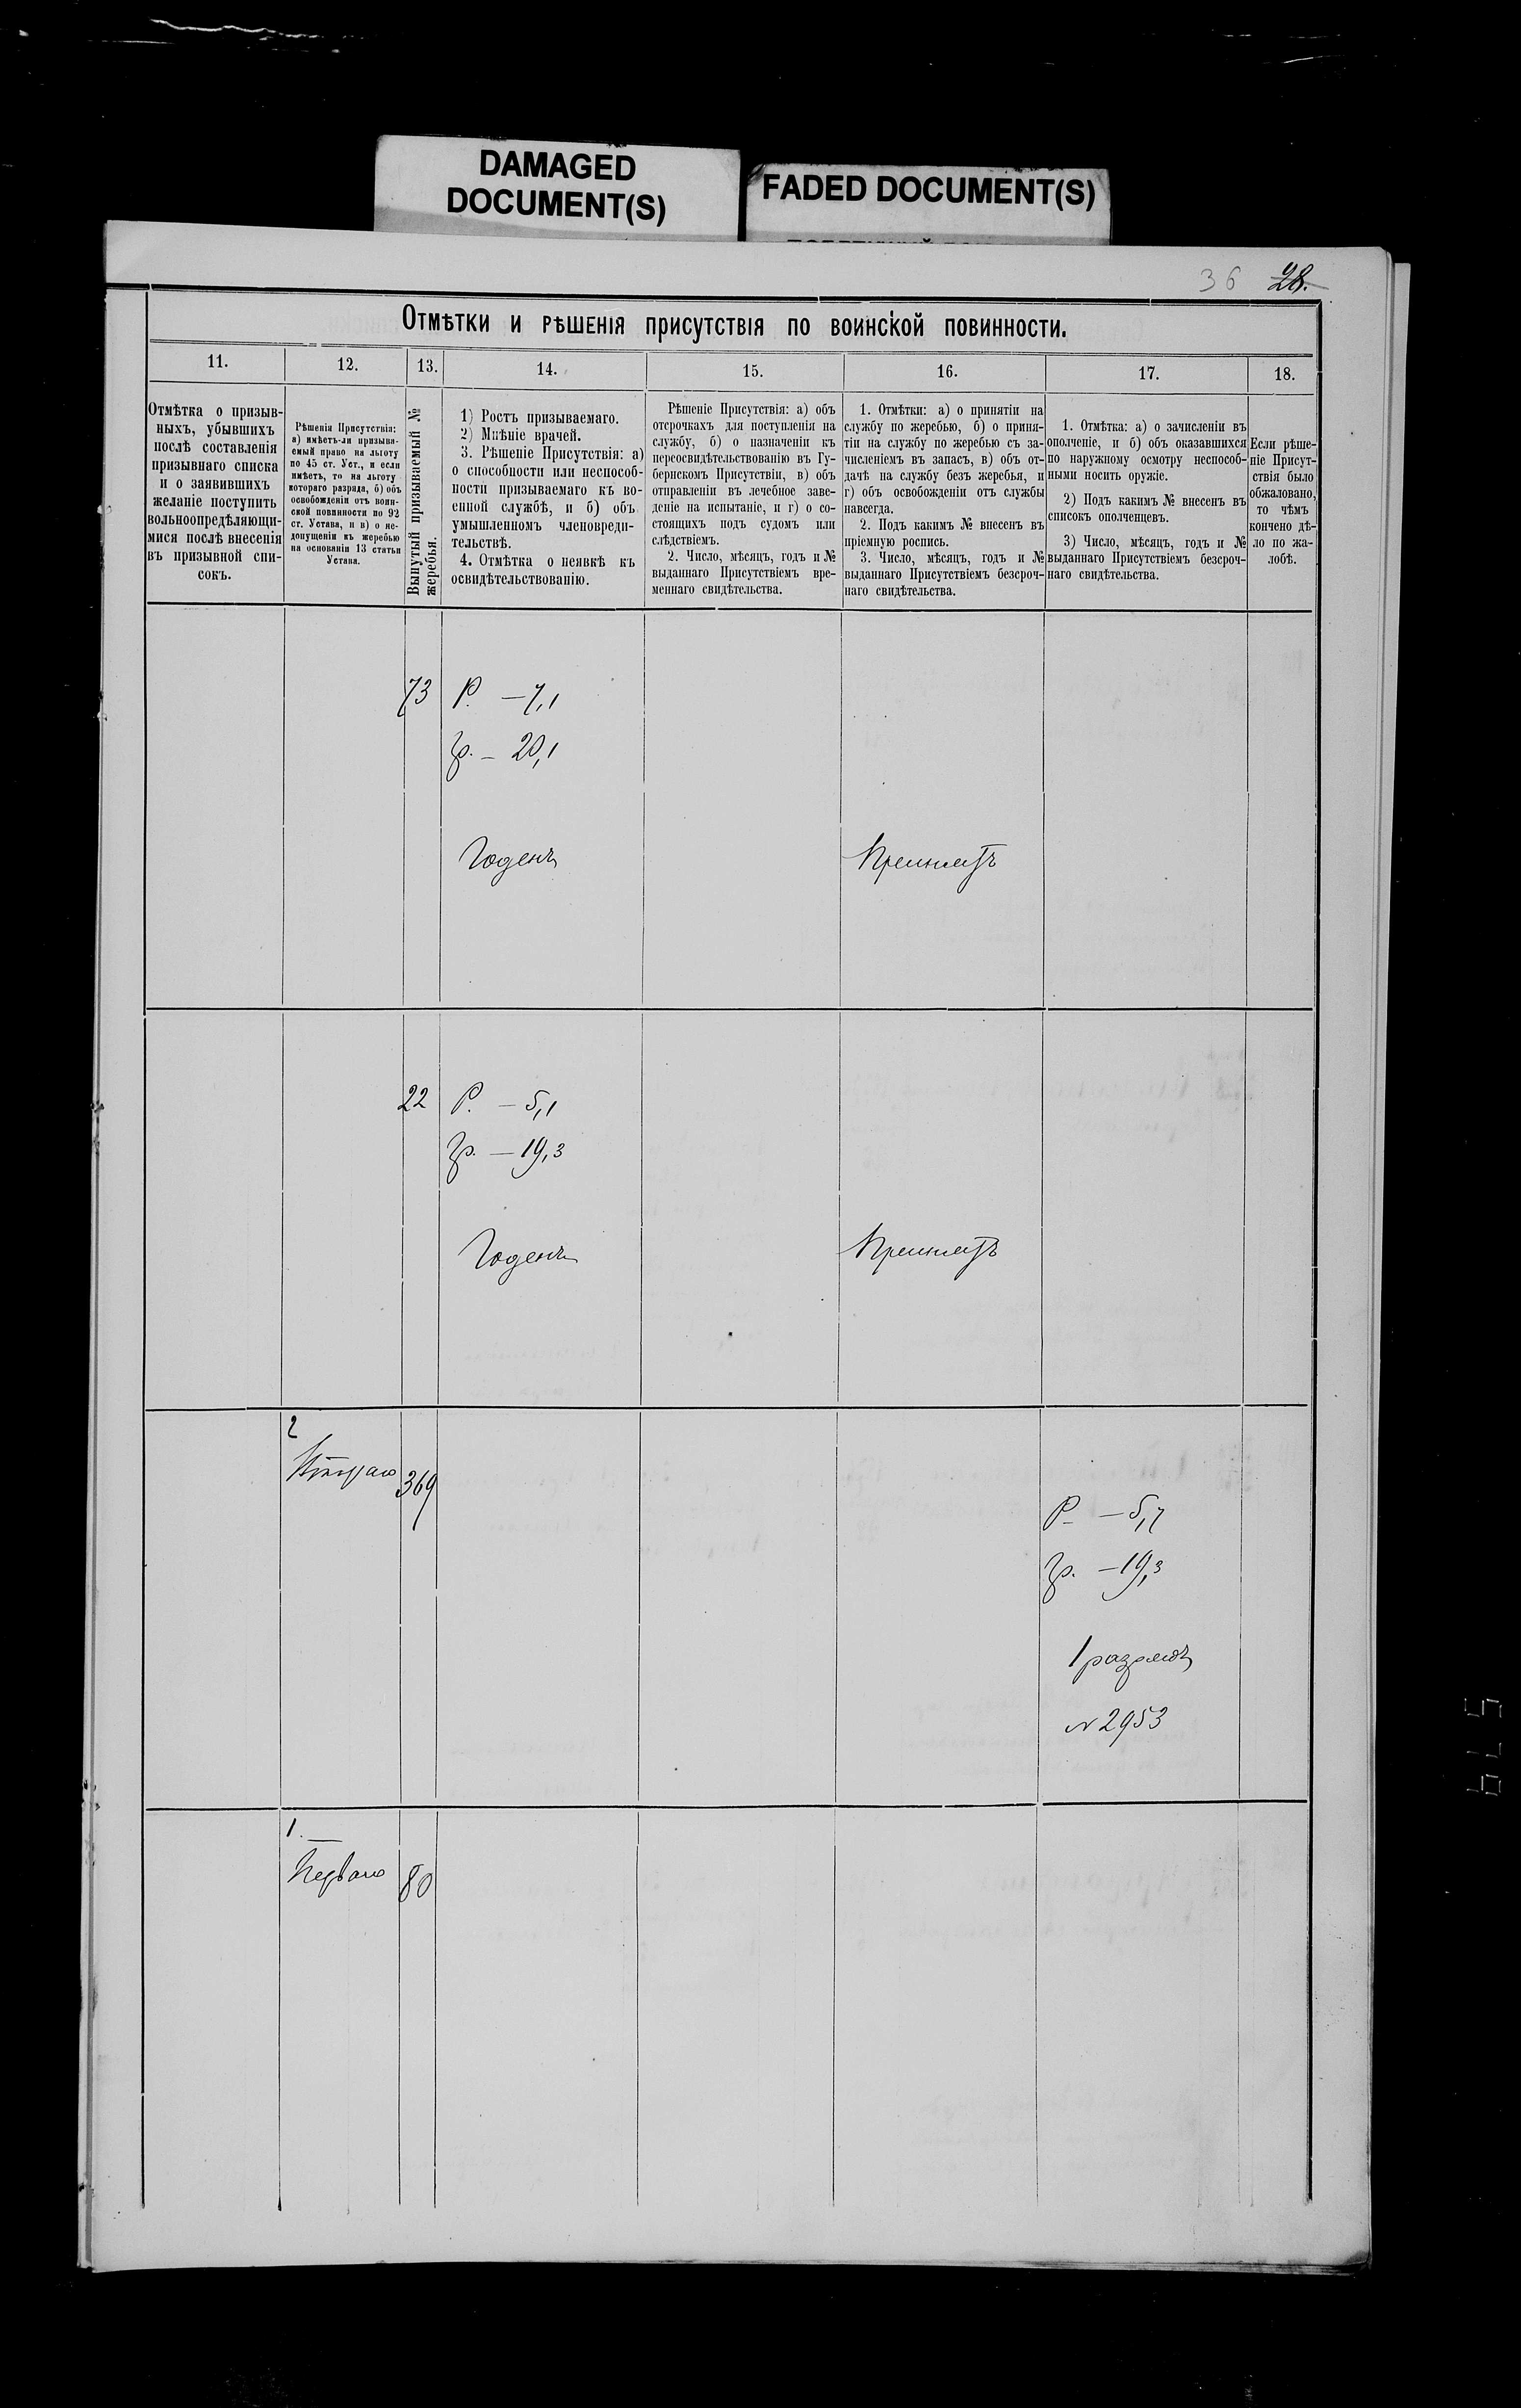 DAMAGED
DOCUMENT(S)
FADED DOCUMENT(S)
36 28.
Отмѣтки и рѣшенія присутствія по воинской повинности.
11.
12.
13.
14.
15.
16.
17.
18.
Отмѣтка о призыв-
ныхъ, убывшихъ
послѣ составленія
призывнаго списка
и о заявившихъ
желаніе поступить
вольноопредѣляющи-
мися послѣ внесенія
въ призывной спи-
сокъ.
Рѣшенія Присутствія:
а) имѣетъ-ли призыва-
емый право на льготу
по 45 ст. Уст., и если
имѣетъ, то на льготу
котораго разряда, б) объ
освобожденіи отъ воин-
ской повинности по 92
ст. Устава, и в) о не-
допущеніи къ жеребью
на основаніи 13 статьи
Устава.
Вынутый призываемый №
жеребья.
1) Ростъ призываемаго.
2) Мнѣніе врачей.
3. Рѣшеніе Присутствія: а)
о способности или неспособ-
ности призываемаго къ во-
енной службѣ, и б) объ
умышленномъ членовреди-
тельствѣ.
4. Отмѣтка о неявкѣ къ
освидѣтельствованію.
Рѣшеніе Присутствія: а) объ
отсрочкахъ для поступленія на
службу, б) о назначеніи къ
переосвидѣтельствованію въ Гу-
бернскомъ Присутствіи, в) объ
отправленіи въ лечебное заве-
деніе на испытаніе, и г) о со-
стоящихъ подъ судомъ или
слѣдствіемъ.
2. Число, мѣсяцъ, годъ и №
выданнаго Присутствіемъ вре-
меннаго свидѣтельства.
1. Отмѣтки: а) о принятіи на
службу по жеребью, б) о приня-
тіи на службу по жеребью съ за-
численіемъ въ запасъ, в) объ от-
дачѣ на службу безъ жеребья, и
г) объ освобожденіи отъ службы
навсегда.
2. Подъ какимъ № внесенъ въ
пріемную роспись.
3. Число, мѣсяцъ, годъ и №
выданнаго Присутствіемъ безсроч-
наго свидѣтельства.
1. Отмѣтка: а) о зачисленіи въ
ополченіе, и б) объ оказавшихся
по наружному осмотру неспособ-
ными носить оружіе.
2) Подъ какимъ № внесенъ въ
списокъ ополченцевъ.
3) Число, мѣсяцъ, годъ и №
выданнаго Присутствіемъ безсроч-
наго свидѣтельства.
Если рѣше-
ніе Присут-
ствія было
обжаловано,
то чѣмъ
кончено дѣ-
ло по жа-
лобѣ.
73 Р. — 7,1
Гр. — 20,1
Годенъ
Принятъ
22 Р. — 5,1
Гр. — 19,3
Годенъ
Принятъ
2
Втораго 369
Р — 5,7
Гр. — 19,3
1 разрядъ
№ 2953
1.
Перваго 80
579